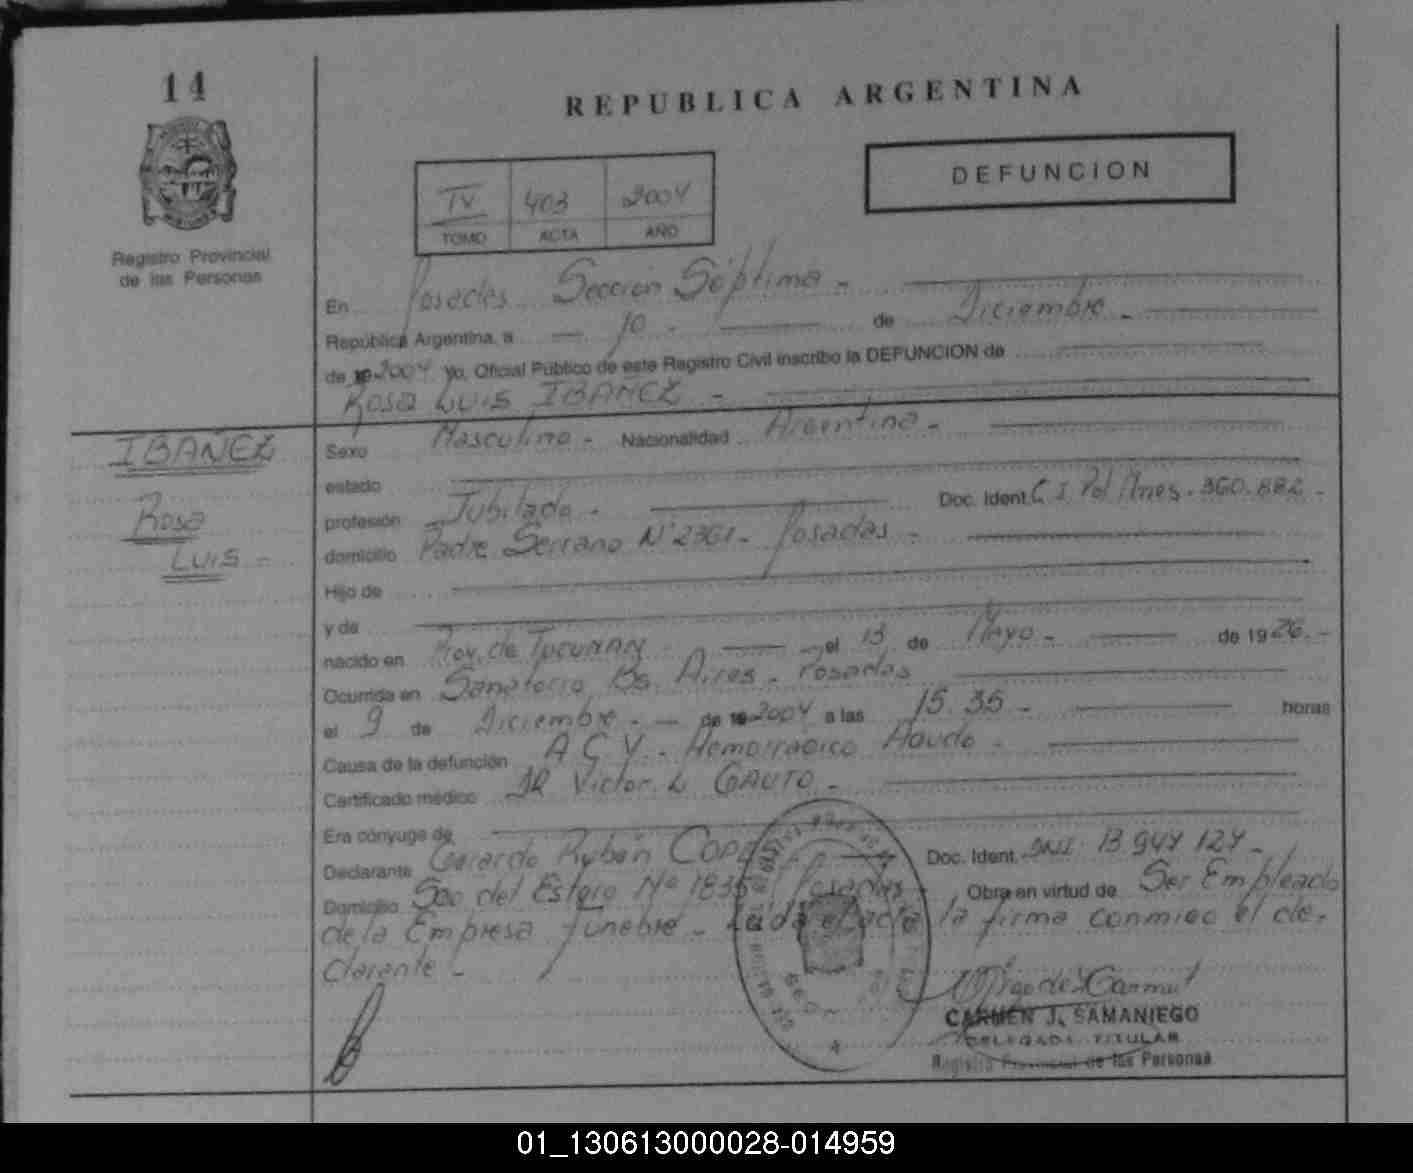 14
REPUBLICA ARGENTINA
DEFUNCION
TV 403 2004
TOMO ACTA AÑO
Registro Provincial
de las Personas
En Posadas Sección Séptima -
República Argentina, a 10 - de Diciembre -
de 19 2004 Yo, Oficial Público de este Registro Civil inscribo la DEFUNCION de
Rosa Luis IBAÑEZ -
IBAÑEZ
Rosa
Luis -
Sexo Masculino - Nacionalidad Argentina -
estado
profesión Jubilado - Doc. Ident. C I Pol Mnes. 360.882 -
domicilio Padre Serrano N° 2361 - Posadas -
Hijo de
y de
nacido en Prov. de Tucumán - el 13 de Mayo - de 1926. -
Ocurrida en Sanatorio Bs. Aires - Posadas
el 9 de Diciembre - de 19 2004 a las 15.35 - horas
Causa de la defunción A C V - Hemorragico Agudo -
Certificado médico DR Victor L GAUTO -
Era cónyuge de
Declarante Gerardo Rubén Doc. Ident. DNI 13 944 124 -
Domicilio Sgo del Estero N° 1835 Posadas - Obra en virtud de Ser Empleado
de la Empresa funebre - Leída el acta la firma conmigo el de-
clarante -
CARMEN J. SAMANIEGO
DELEGADA TITULAR
Registro Provincial de las Personas
01_130613000028-014959